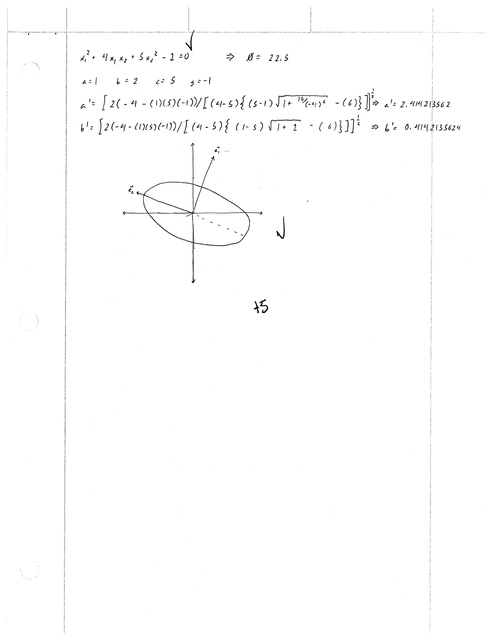 x₁² + 4x₁x₂ + 5x₂² - 1 = 0 ✓ ⇒ Ø = 22.5
a=1 b=2 c=5 g=-1
a' = [2(-4-(1)(5)(-1))/[(4-5){(5-1)√(1+16/(-4)²) -(6)}]]^½ ⇒ a' = 2.414213562
b' = [2(-4-(1)(5)(-1))/[(4-5){(1-5)√(1+1) -(6)}]]^½ ⇒ b' = 0.4142135624
+5